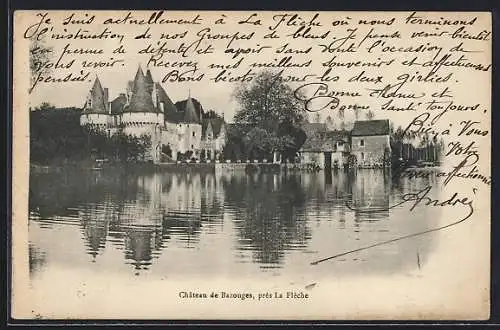 Je suis actuellement à La Flèche où nous terminons
l'instruction de nos Groupes de bleus. Je pense venir bientôt
en perme de détente et avoir sans doute l'occasion de
vous revoir. Recevez mes meilleurs souvenirs et affectueuses
pensées. Bons baisers pour les deux girlies.
Bonne chance et
Bonne Santé toujours.
Bien à Vous
Votre affecté
André
Château de Bazouges, près La Flèche